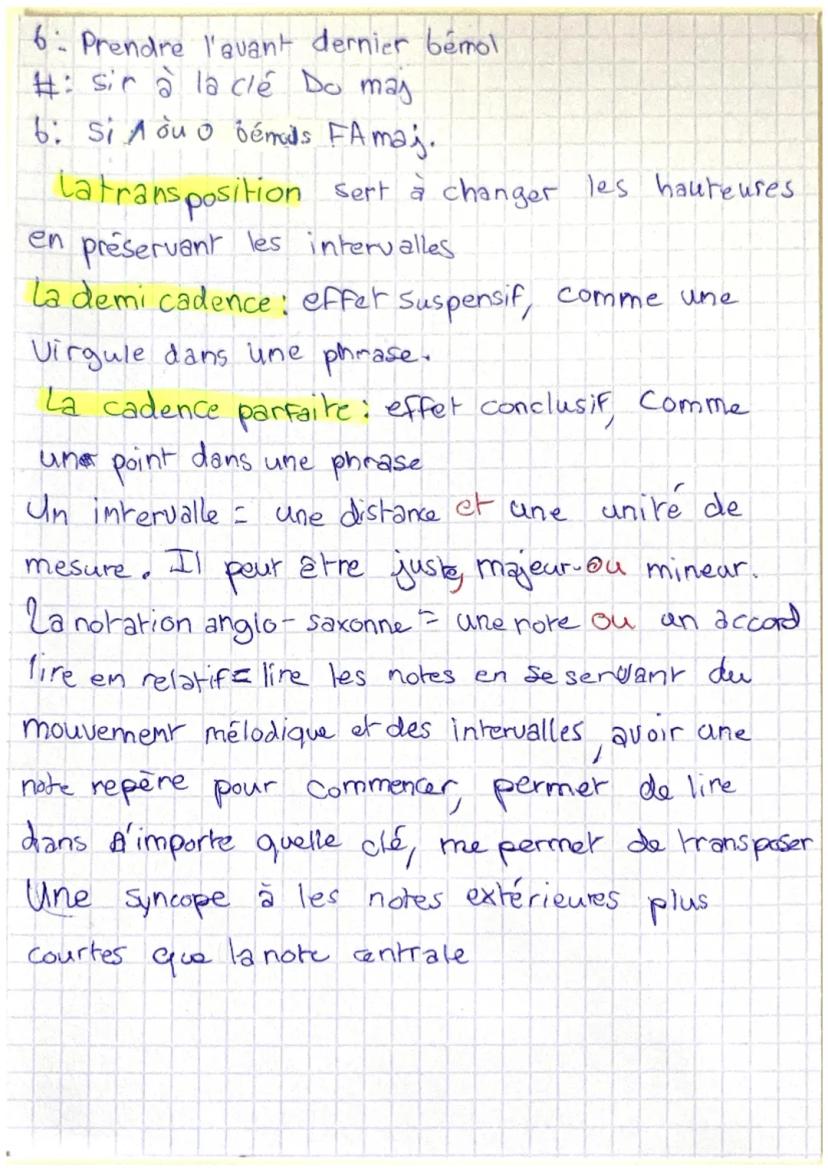 b: Prendre l'avant dernier bémol
#: sir à la clé Do maj
b: Si 1 ou 0 bémols FA maj.
La transposition sert à changer les hauteures
en préservant les intervalles
La demi cadence: effet suspensif, comme une
Virgule dans une phrase.
La cadence parfaite: effet conclusif, comme
un point dans une phrase
Un intervalle = une distance et une unité de
mesure. Il peut être juste, majeur ou mineur.
La notation anglo-saxonne = une note ou un accord
lire en relatif = lire les notes en se servant du
mouvement mélodique et des intervalles, avoir une
note repère pour commencer, permet de lire
dans n'importe quelle clé, me permet de transposer
Une syncope à les notes extérieures plus
courtes que la note centrale